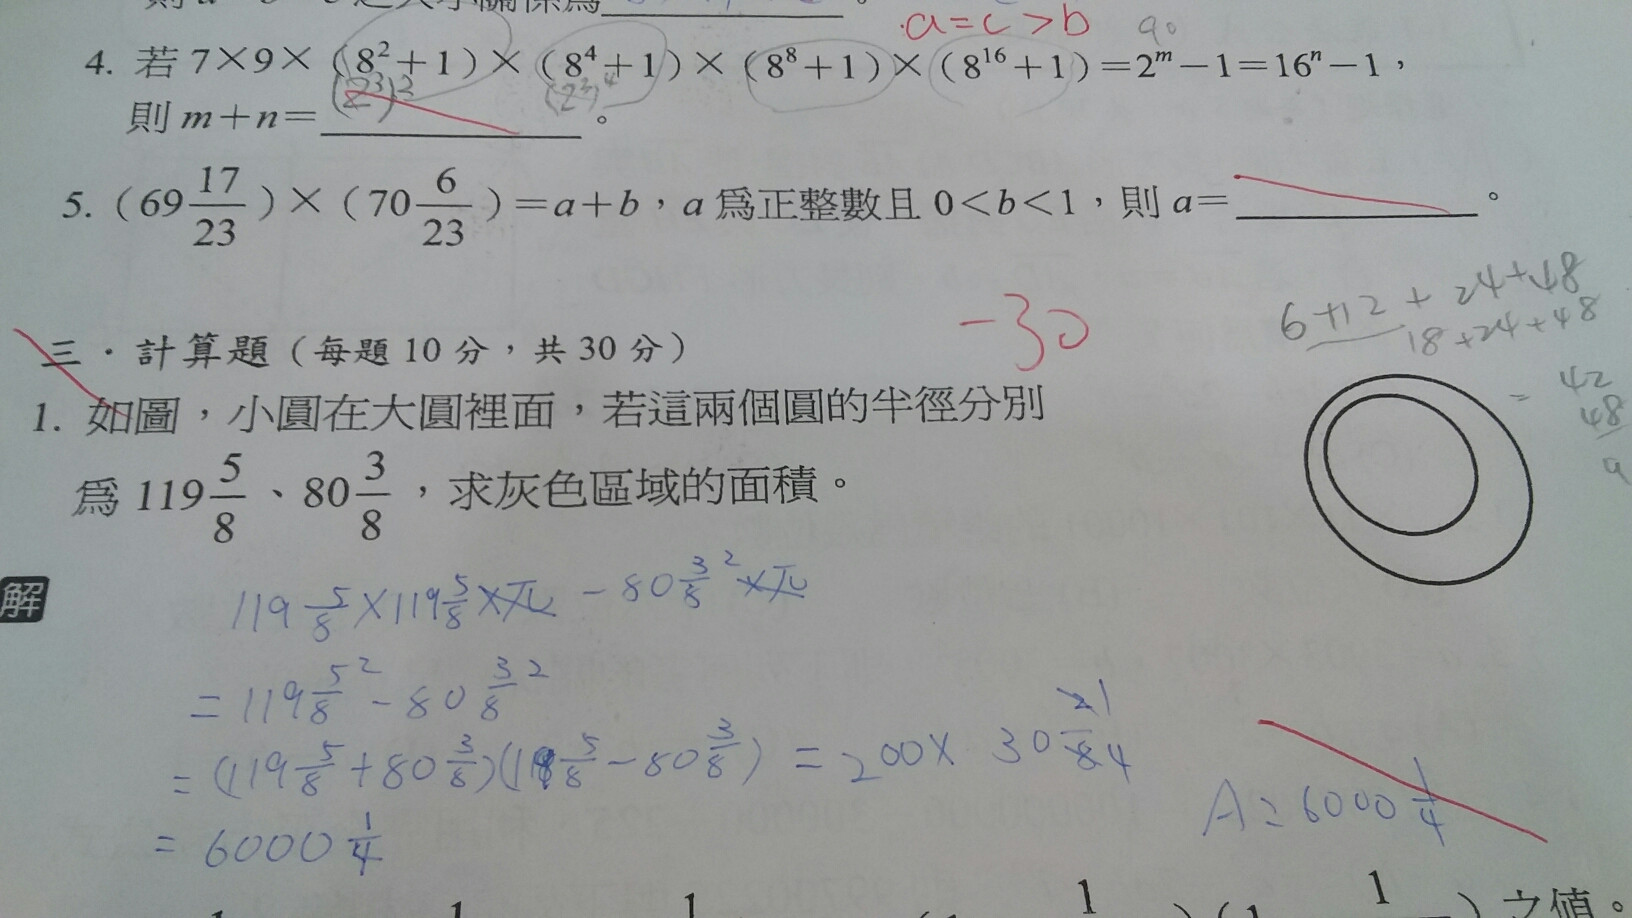 a=c>b
4. 若 7×9×(8²+1)×(8⁴+1)×(8⁸+1)×(8¹⁶+1)=2ᵐ-1=16ⁿ-1，
(2³)² (2³)⁴
則 m+n=＿＿＿＿。
5.（69 17/23）×（70 6/23）=a+b，a 為正整數且 0<b<1，則 a=＿＿＿＿。
-30
6+12+24+48
18+24+48
= 42
48
三．計算題（每題 10 分，共 30 分）
1. 如圖，小圓在大圓裡面，若這兩個圓的半徑分別
為 119 5/8、80 3/8，求灰色區域的面積。
解
119 5/8 × 119 5/8 × π - 80 3/8² × π
= 119 5/8² - 80 3/8²
= (119 5/8 + 80 3/8)(119 5/8 - 80 3/8) = 200 × 30 2/8 1/4
= 6000 1/4
A= 6000 1/4
之值。